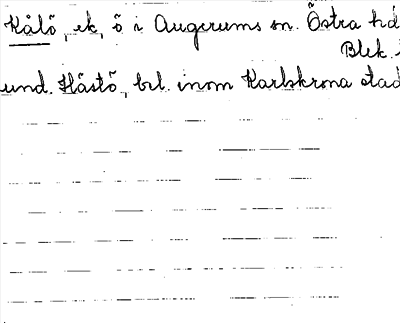 Kålö, ek, ö i Augerums sn. Östra hd
Blek.
und. Hästö, bel. inom Karlskrona stad